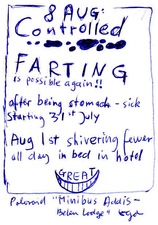 8 AUG:
Controlled
FARTING
is possible again!!
after being stomach-sick
starting 31st July
Aug 1st shivering fever
all day in bed in hotel
GREAT
"Minibus Addis-
Belen Lodge"